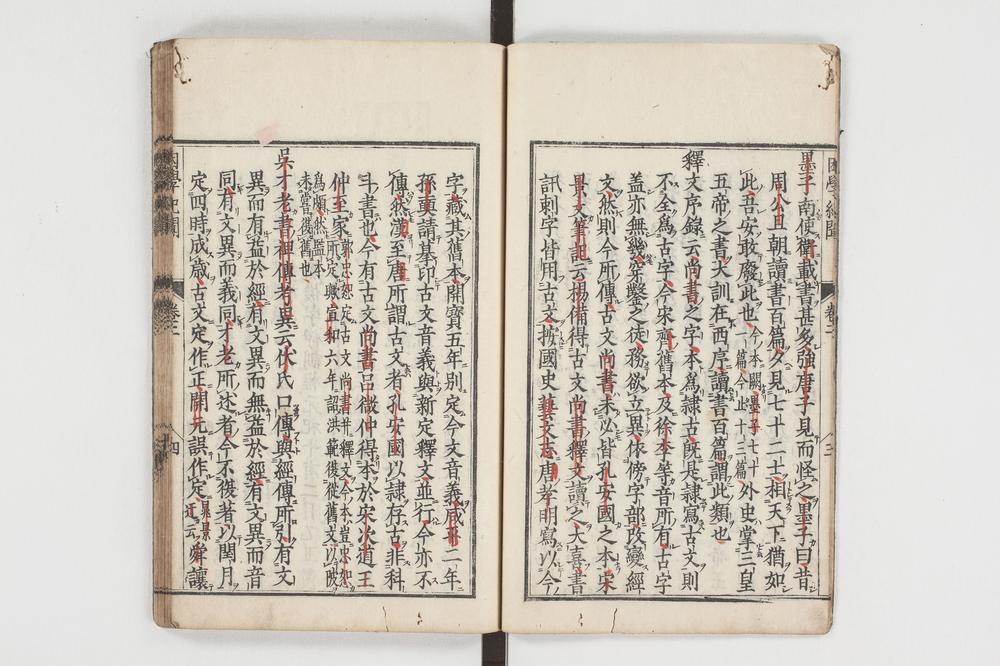 困學紀聞 卷二 三
墨子南使衛載書甚多弦唐子見而怪之墨子曰昔
周公旦朝讀書百篇夕見七十二士相天下猶如
此吾安敢廢此也今本闕墨子七十一篇今止十三篇外史掌三皇
五帝之書大訓在西序讀書百篇謂此類也
釋文序錄云尚書之字本為隸古既是隸寫古文則
不全為古字今宋齊舊本及徐李等音所有古字
蓋亦無幾穿鑿之徒務欲立異依傍字部改變經
文然則今所傳古文尚書未必皆孔安國之本宋
景文筆記云楊備得古文尚書釋文讀之大喜書
訊刺字皆用古文按國史藝文志唐孝明寫以今
字藏其舊本開寶五年別定今文音義咸平二年
孫奭請摹印古文音義與新定釋文並行今亦不
傳然漢至唐所謂古文者孔安國以隸存古非科
斗書也今有古文尚書呂微仲得本於宋次道王
仲至家郭忠恕定古文尚書幷釋文今本豈忠恕所定歟宣和六年詔洪範復從舊文以陂
為頗然監本未嘗復舊也
吳才老書裨傳考異云伏氏口傳與經傳所引有文
異而有益於經有文異而無益於經有文異而音
同有文異而義同才老所述者今不復著以閏月
定四時成歲古文定作正開元誤作定晁景迂云舜讓
困學紀聞 卷二 四